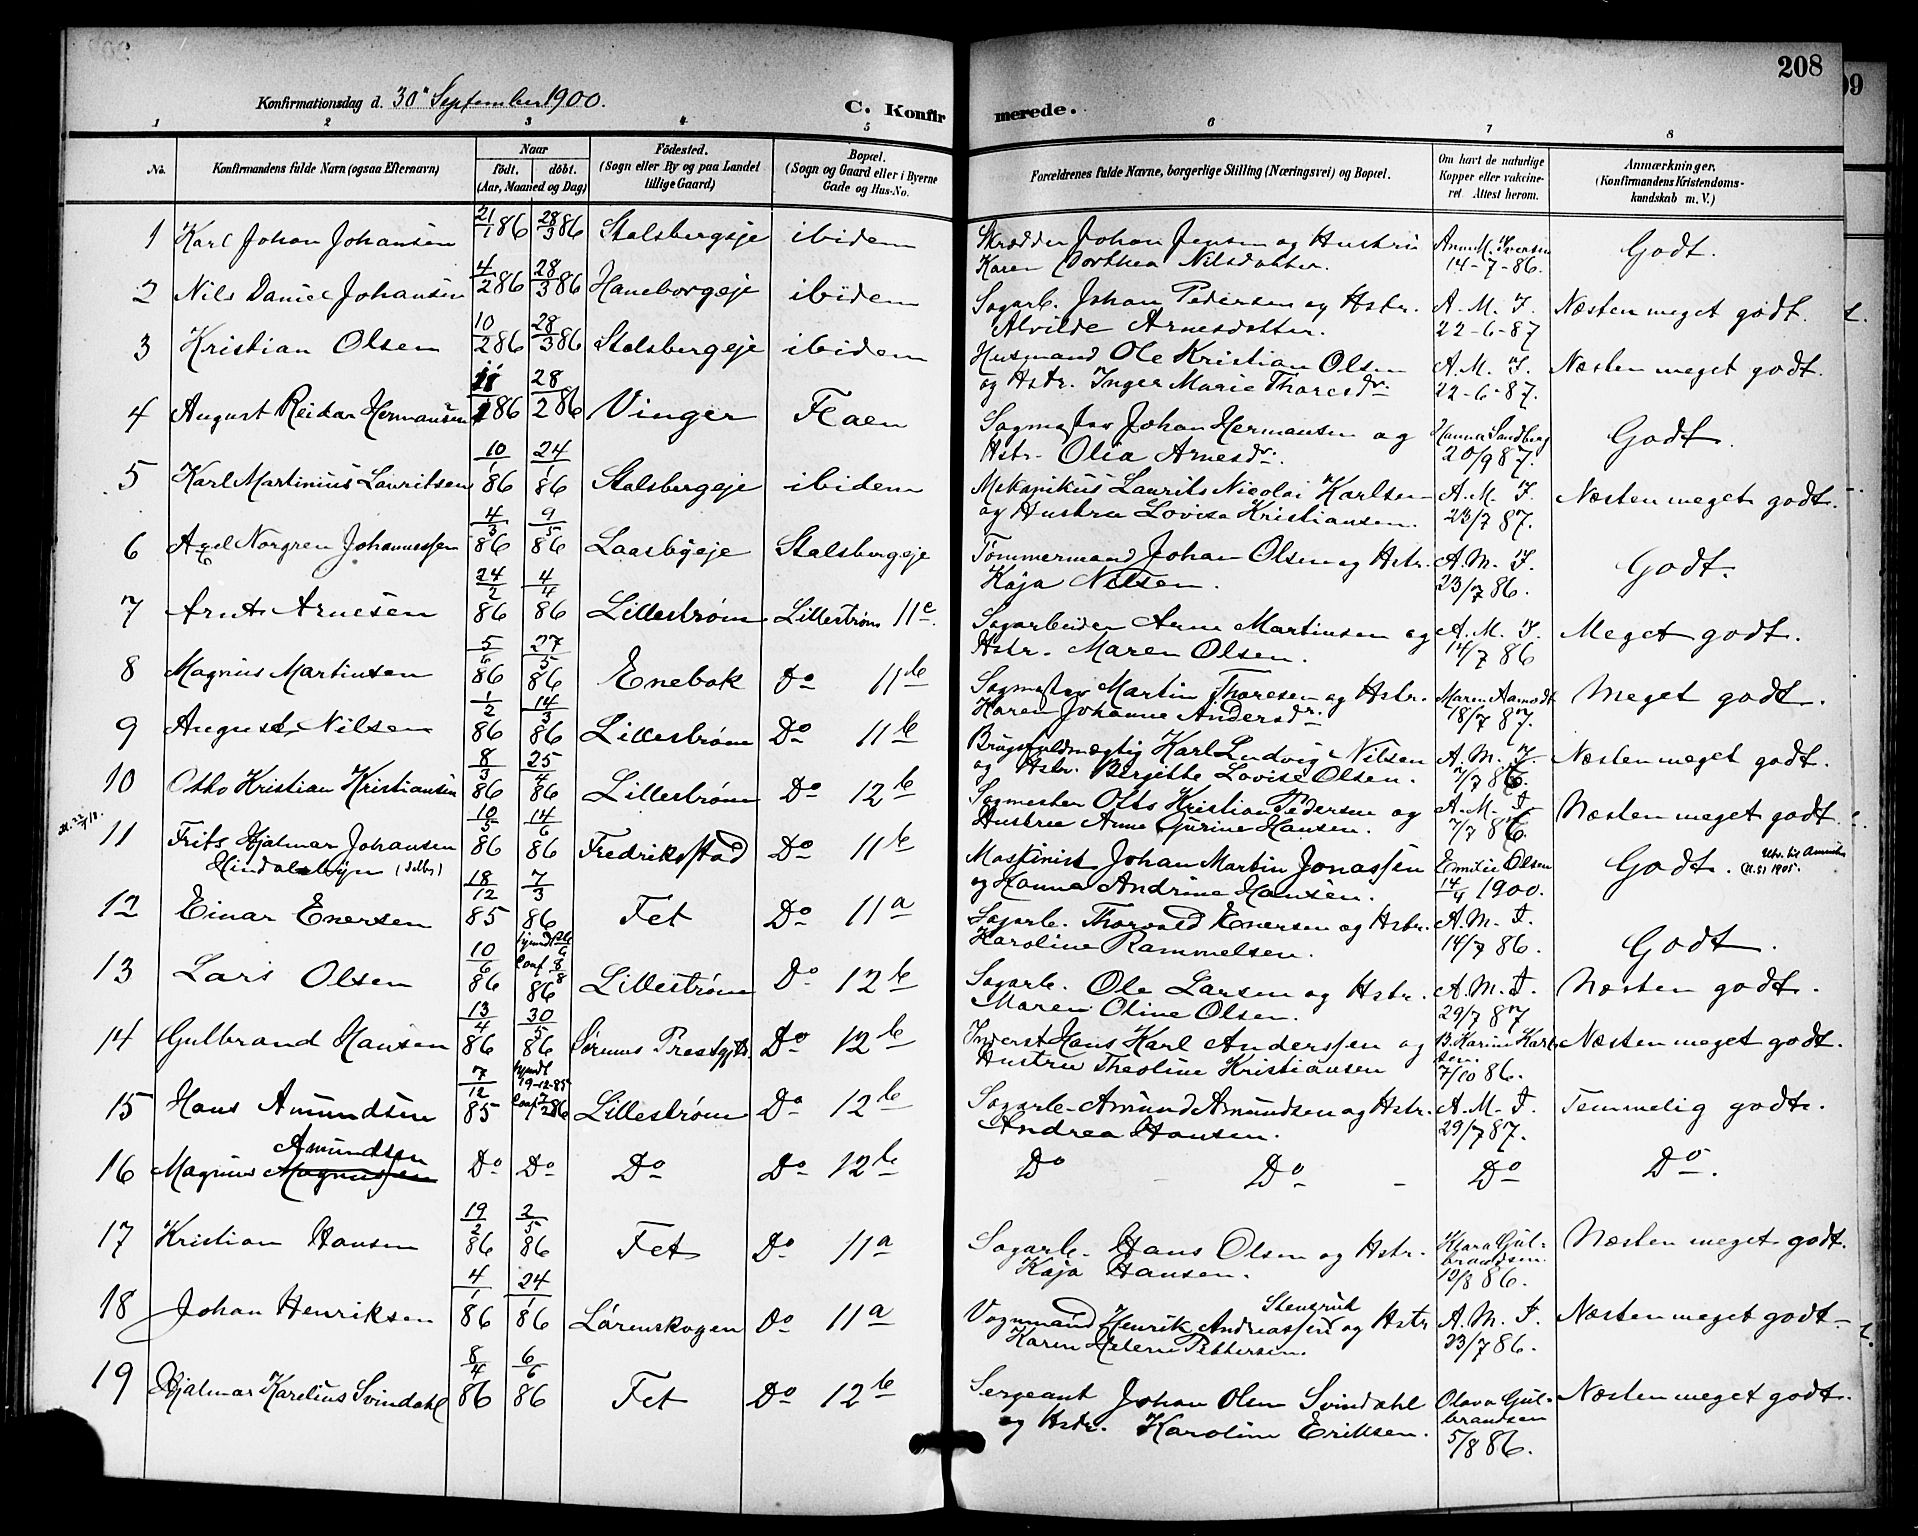 208
Konfirmationsdag d. 30' September 1900.
C. Konfirmerede.
1 2 3 4 5 6 7 8
No.
Konfirmandens fulde Navn (ogsaa Efternavn)
Naar
født. døbt.
(Aar, Maaned og Dag)
Fødested.
(Sogn eller By og paa Landet
tillige Gaard)
Bopæl.
(Sogn og Gaard eller i Byerne
Gade og Hus-No.
Forældrenes fulde Navne, borgerlige Stilling (Næringsvei) og Bopæl.
Om havt de naturlige
Kopper eller vakcineret
Attest herom.
Anmærkninger,
(Konfirmandens Kristendomskundskab
m. V.)
1 Karl Johan Johansen 21/1 86 28/3 86 Stalsbergeje ibidem Skrædder Johan Jensen og Hustru Anne M. Iversen Godt.
Karen Dorthea Nilsdatter. 14-7-86.
2 Nils Daniel Johansen 4/2 86 28/3 86 Haneborgeje ibidem Sagarb. Johan Pedersen og Hstr. A. M. I. Næsten meget godt.
Alvilde Arnesdatter. 22-6-87
3 Kristian Olsen 10/2 86 28/3 86 Stalsbergeje ibidem Husmand Ole Kristian Olsen A. M. I. Næsten meget godt.
og Hstr. Inger Marie Thoresdr. 22-6-87.
4 August Reidar Hermansen 86 28/2 86 Vinger Flaen Sagmester Johan Hermansen og Hanna Sandberg Godt.
Hstr. Olia Arnesdr. 20/9 87.
5 Karl Martinius Lauritsen 10/1 86 24/1 86 Stalsbergeje ibidem Mekanikus Laurits Nicolai Karlsen A. M. I. Næsten meget godt.
og Hustru Lovise Kristiansen. 23/7 87.
6 Axel Norgren Johannessen 4/3 86 9/5 86 Laasbyeje Stalsbergeje Tømmermand Johan Olsen og Hstr. A. M. I. Godt.
Kaja Nilsen. 23/7 86.
7 Arnt Arnesen 24/2 86 4/4 86 Lillestrøm Lillestrøm 11c. Sagarbeider Arne Martinsen og A. M. I. Meget godt.
Hstr. Maren Olsen. 14/7 86
8 Magnus Martinsen 5/6 86 27/5 86 Enebak Do 11b Sagmester Martin Thoresen og Hstr. Maren Aamodt Meget godt.
Karen Johanne Andersdr. 18/7 87.
9 August Nilsen 1/2 86 14/3 86 Lillestrøm Do 11b Brugsfuldmægtig Karl Ludvig Nilsen A. M. I. Næsten meget godt.
og Hstr. Birgitte Lovise Olsen. 7/7 86.
10 Otto Kristian Kristiansen 8/3 86 25/4 86 Lillestrøm Do 12b Sagmester Otto Kristian Pedersen og A. M. I. Næsten meget godt.
Hustru Anne Gurine Hansen. 7/7 86.
11 Frits Hjalmar Johansen 10/5 86 14/6 86 Fredriksstad Do 11b Maskinist Johan Martin Jonassen Emilie Olsen Godt.
og Hanna Andrine Hansen. 14/4 1900.
12 Einar Enersen 18/12 85 7/3 86 Fet Do 11a Sagarb. Thorvald Enersen og Hstr. A. M. I. Godt.
Karoline Rammelsen. 14/7 86.
13 Lars Olsen 10/6 86 hjemdt 26/6 conf 8/8 86 Lillestrøm Do 12b Sagarb. Ole Larsen og Hstr. A. M. I. Næsten godt.
Maren Oline Olsen. 29/7 87
14 Gulbrand Hansen 13/4 86 30/5 86 Sørums Prestgjd. Do 12b Inderst Hans Karl Anderssen og B. Karine Karlsen. Næsten meget godt.
Hustru Theoline Kristiansen 7/10 86.
15 Hans Amundsen 7/12 85 hjemdt 19-12-85 conf 7/2 86 Lillestrøm Do 12b Sagarb. Amund Amundsen og Hstr. A. M. I. Temmelig godt.
Andrea Hansen. 29/7 87.
Amundsen
16 Magnus Magnussen Do Do Do Do 12b Do - Do - Do Do.
17 Kristian Hansen 19/2 86 2/5 86 Fet Do 11a Sagarb. Hans Olsen og Hstr. Klara Gulbrandsen. Næsten meget godt.
Kaja Hansen. 12/8 86.
Stensrud
18 Johan Henriksen 4/1 86 24/1 86 Lørenskogen Do 11a Vognmand Henrik Andreassen og Hstr A. M. I. Næsten meget godt.
Karen Helene Pettersen. 23/7 86.
19 Hjalmar Karelius Svindahl 8/4 86 6/6 86 Fet Do 12b Sergeant Johan Olsen Svindahl Olava Gulbrandsen Næsten meget godt.
og Hstr. Karoline Eriksen. 5/8 86.